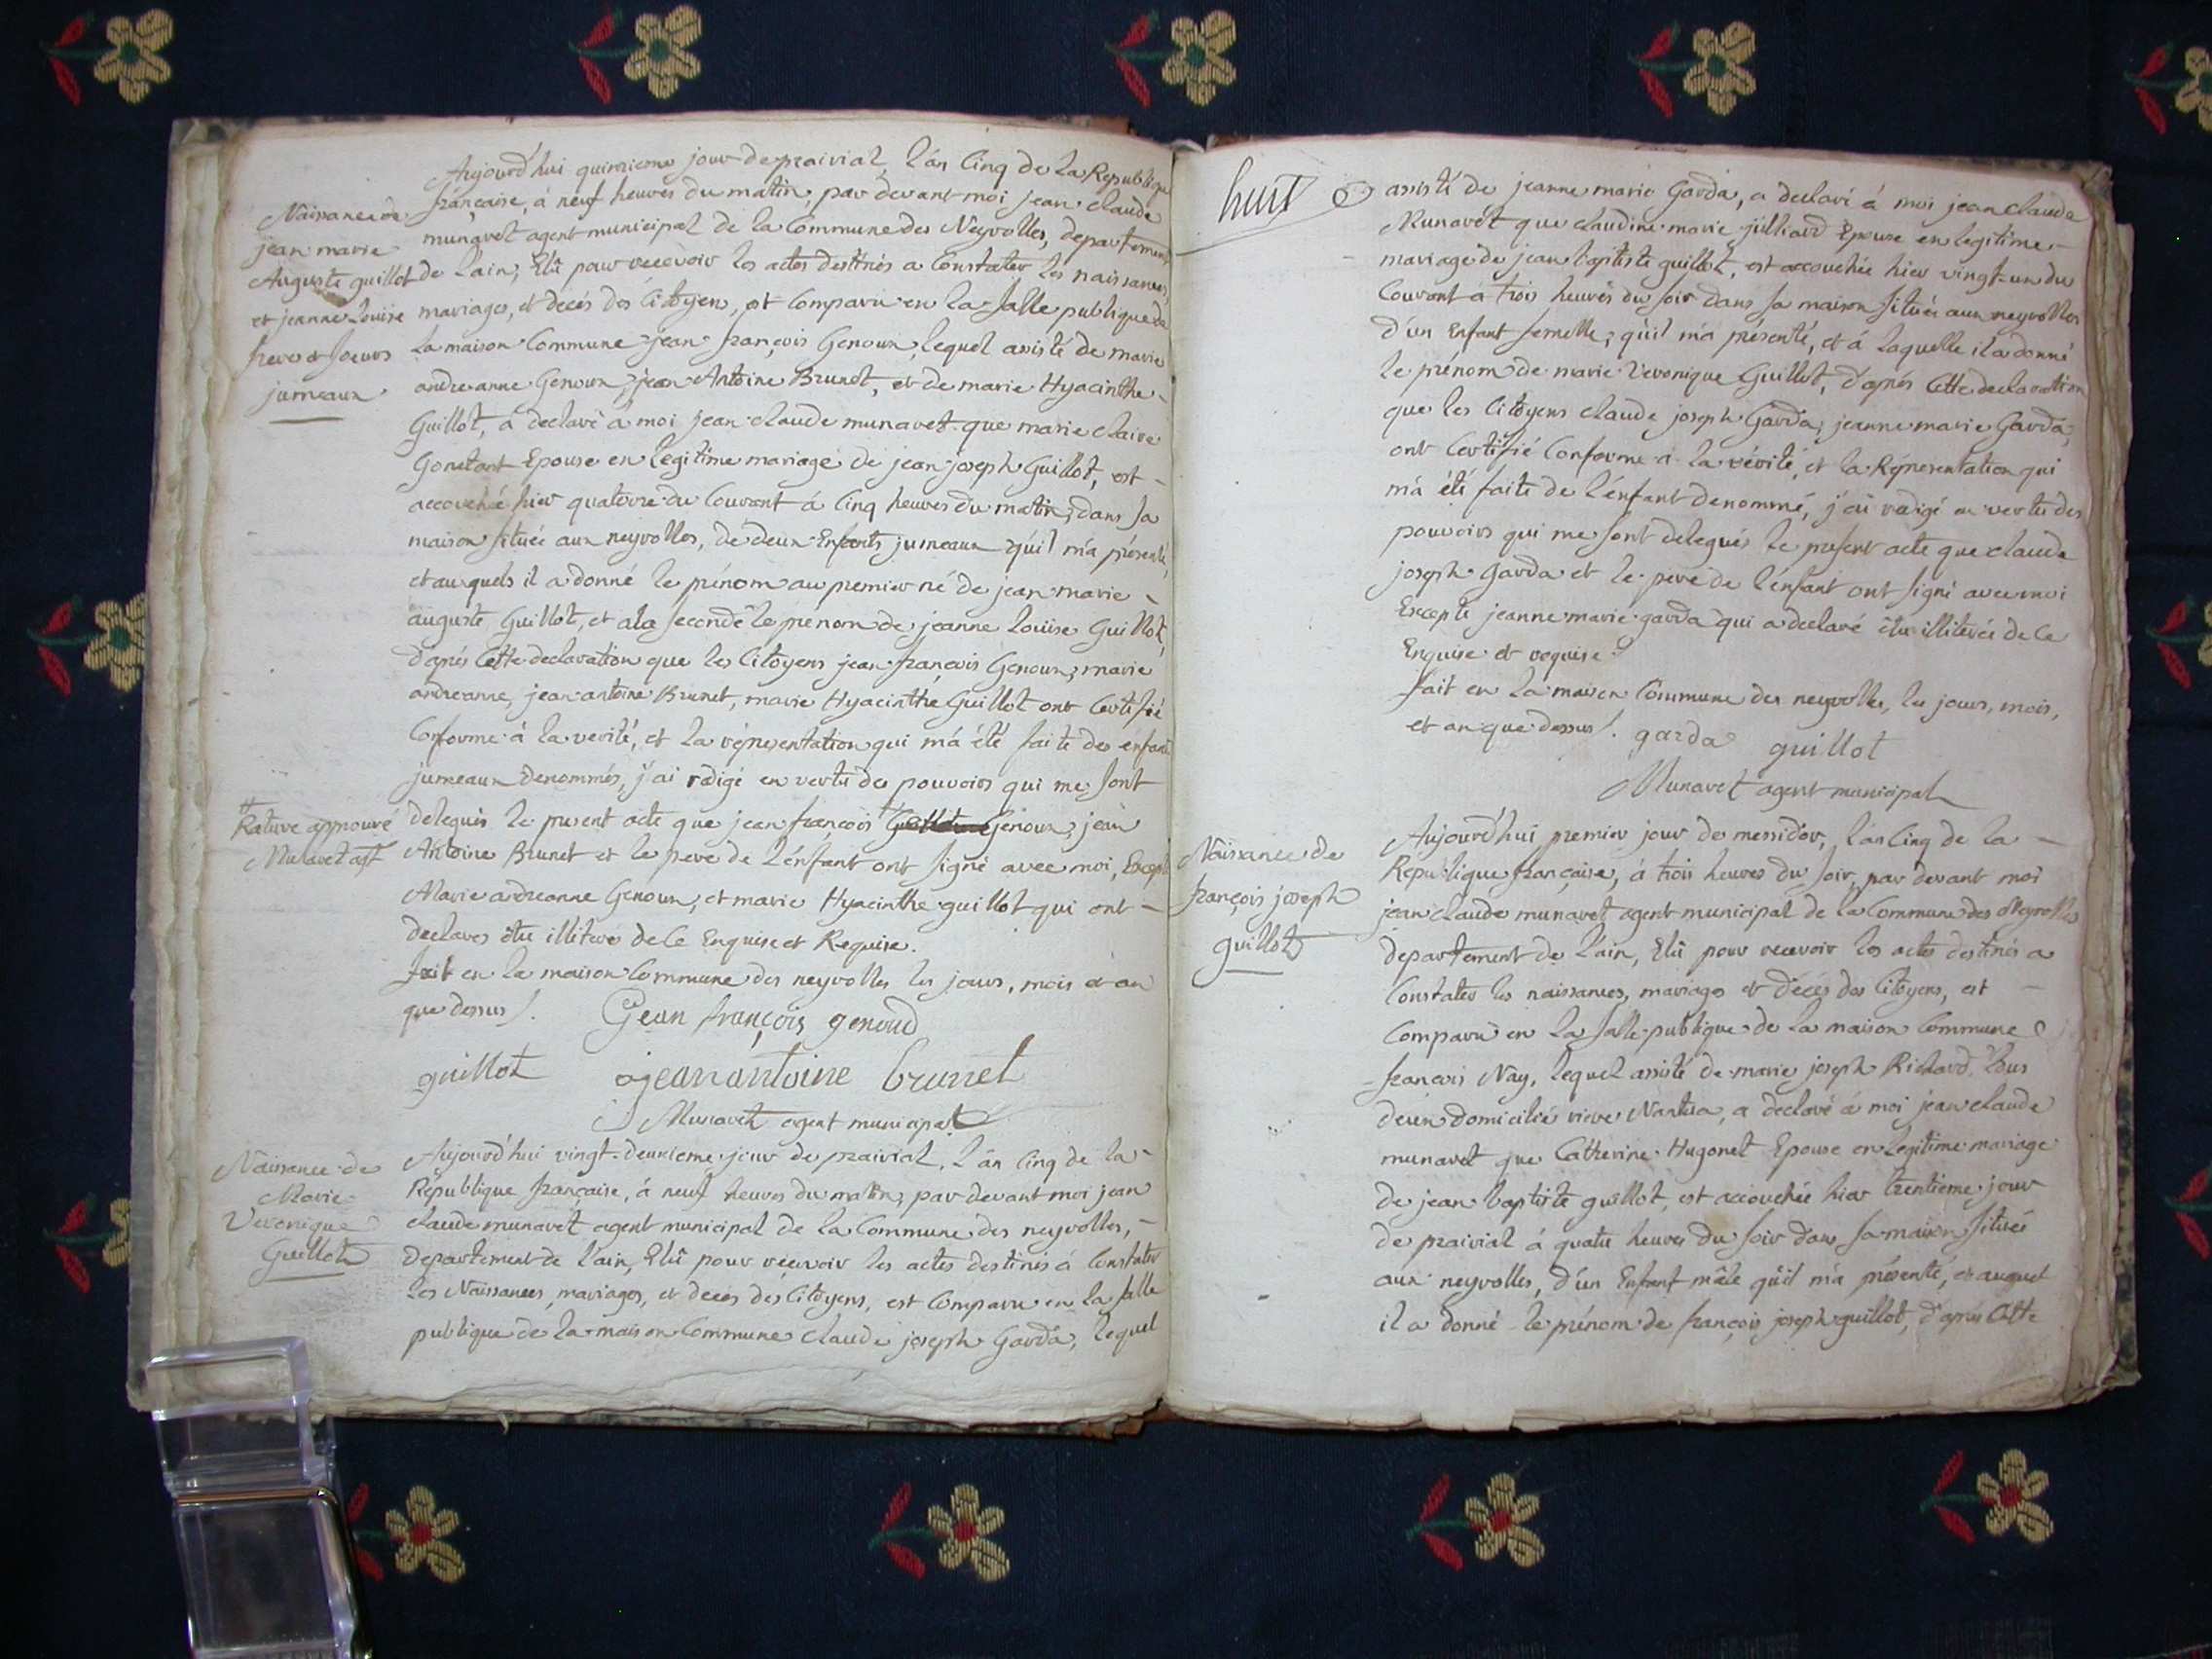 Naissance de
jean marie
Auguste guillot
et jeanne Louise
freres et soeurs
jumeaux
Aujourd'hui quinzieme jour de prairial, l'an Cinq de la Republique
française, à neuf heures du matin, par devant moi jean claude
munavet agent municipal de la Commune des Neyrolles, departement
de l'ain, Elû pour recevoir les actes destinés a Constater les naissances,
mariages, et decés des Citoyens, est Comparu en la salle publique de
la maison Commune jean françois Genoux, lequel assisté de marie
andreanne Genoux, jean Antoine Brunet, et de marie Hyacinthe
Guillot, à declaré à moi jean claude munavet que marie claire
Gonetant Epouse en legitime mariage de jean joseph Guillot, est
accouchée hier quatorze du Courant à Cinq heures du matin, dans sa
maison située aux neyrolles, de deux Enfants jumeaux qu'il m'a présenté,
et auxquels il a donné le prénom au premier né de jean marie
auguste Guillot, et a la seconde le prénom de jeanne Louise Guillot,
d'aprés Cette declaration que les Citoyens jean françois Genoux, marie
andreanne, jean antoine Brunet, marie Hyacinthe Guillot ont Certifié
Conforme à la verité, et la répresentation qui m'a été faite des enfants
jumeaux denommés, j'ai rédigé en vertu des pouvoirs qui me sont
# Rature approuvé
Munavet agt
delegués le present acte que jean françois # Genoux, jean
Antoine Brunet et le pere de l'énfant ont signé avec moi, Excepté
Marie andreanne Genoux, et marie Hyacinthe guillot qui ont
declarés être illiterés de Ce Enquise et Requise.
fait en la maison Commune des neyrolles les jours, mois et an
que dessus /.
Gean françois genoud
guillot jean antoine brunet
Munavet agent municipal
Naissance de
Marie
Veronique
Guillot
Aujourd'hui vingt-deuxieme jour de prairial, l'an Cinq de la
République française, à neuf heures du matin, par devant moi jean
claude munavet agent municipal de la Commune des neyrolles,
departement de l'ain, Elû pour recevoir les actes destinés à Constater
les Naissances, mariages, et decés des Citoyens, est Comparu en la salle
publique de la maison Commune Claude joseph Garda, lequel
huit
assisté de jeanne marie Garda, a declaré à moi jean claude
Munavet que claudine marie julliard Epouse en legitime
mariage de jean baptiste guillot, est accouchée hier vingt-un du
Courant à trois heures du soir dans sa maison située aux neyrolles
d'un Enfant femelle, qu'il m'a présenté, et à laquelle il a donné
le prénom de marie Veronique Guillot, d'aprés Cette declaration
que les Citoyens claude joseph Garda, jeanne marie Garda,
ont Certifié Conforme a la vérité, et la Répresentation qui
m'a été faite de l'énfant denommé, j'ai redigé en vertu des
pouvoirs qui me sont delegués le present acte que claude
joseph Garda et le pere de l'énfant ont signé avec moi
Excepté jeanne marie garda qui a declaré être illiterée de Ce
Enquise et requise.
fait en la maison Commune des neyrolles, les jours, mois,
et an que dessus /. garda guillot
Munavet agent municipal
Naissance de
françois joseph
guillot
Aujourd'hui premier jour de messidor, l'an Cinq de la
Republique française, à trois heures du soir, par devant moi
jean claude munavet agent municipal de la Commune des Neyrolles
departement de l'ain, Elû pour recevoir les actes destinés a
Constater les naissances, mariages et décés des Citoyens, est
Comparu en la salle publique de la maison Commune
françois Nay, lequel assisté de marie joseph Richard, tous
deux domiciliés riere Nantua, a declaré à moi jean claude
munavet que Catherine Hugonet Epouse en legitime mariage
de jean baptiste guillot, est accouchée hier trentieme jour
de prairial à quatre heures du soir dans sa maison située
aux neyrolles, d'un Enfant mâle qu'il m'a présenté, et auquel
il a donné le prénom de françois joseph guillot, d'aprés Cette